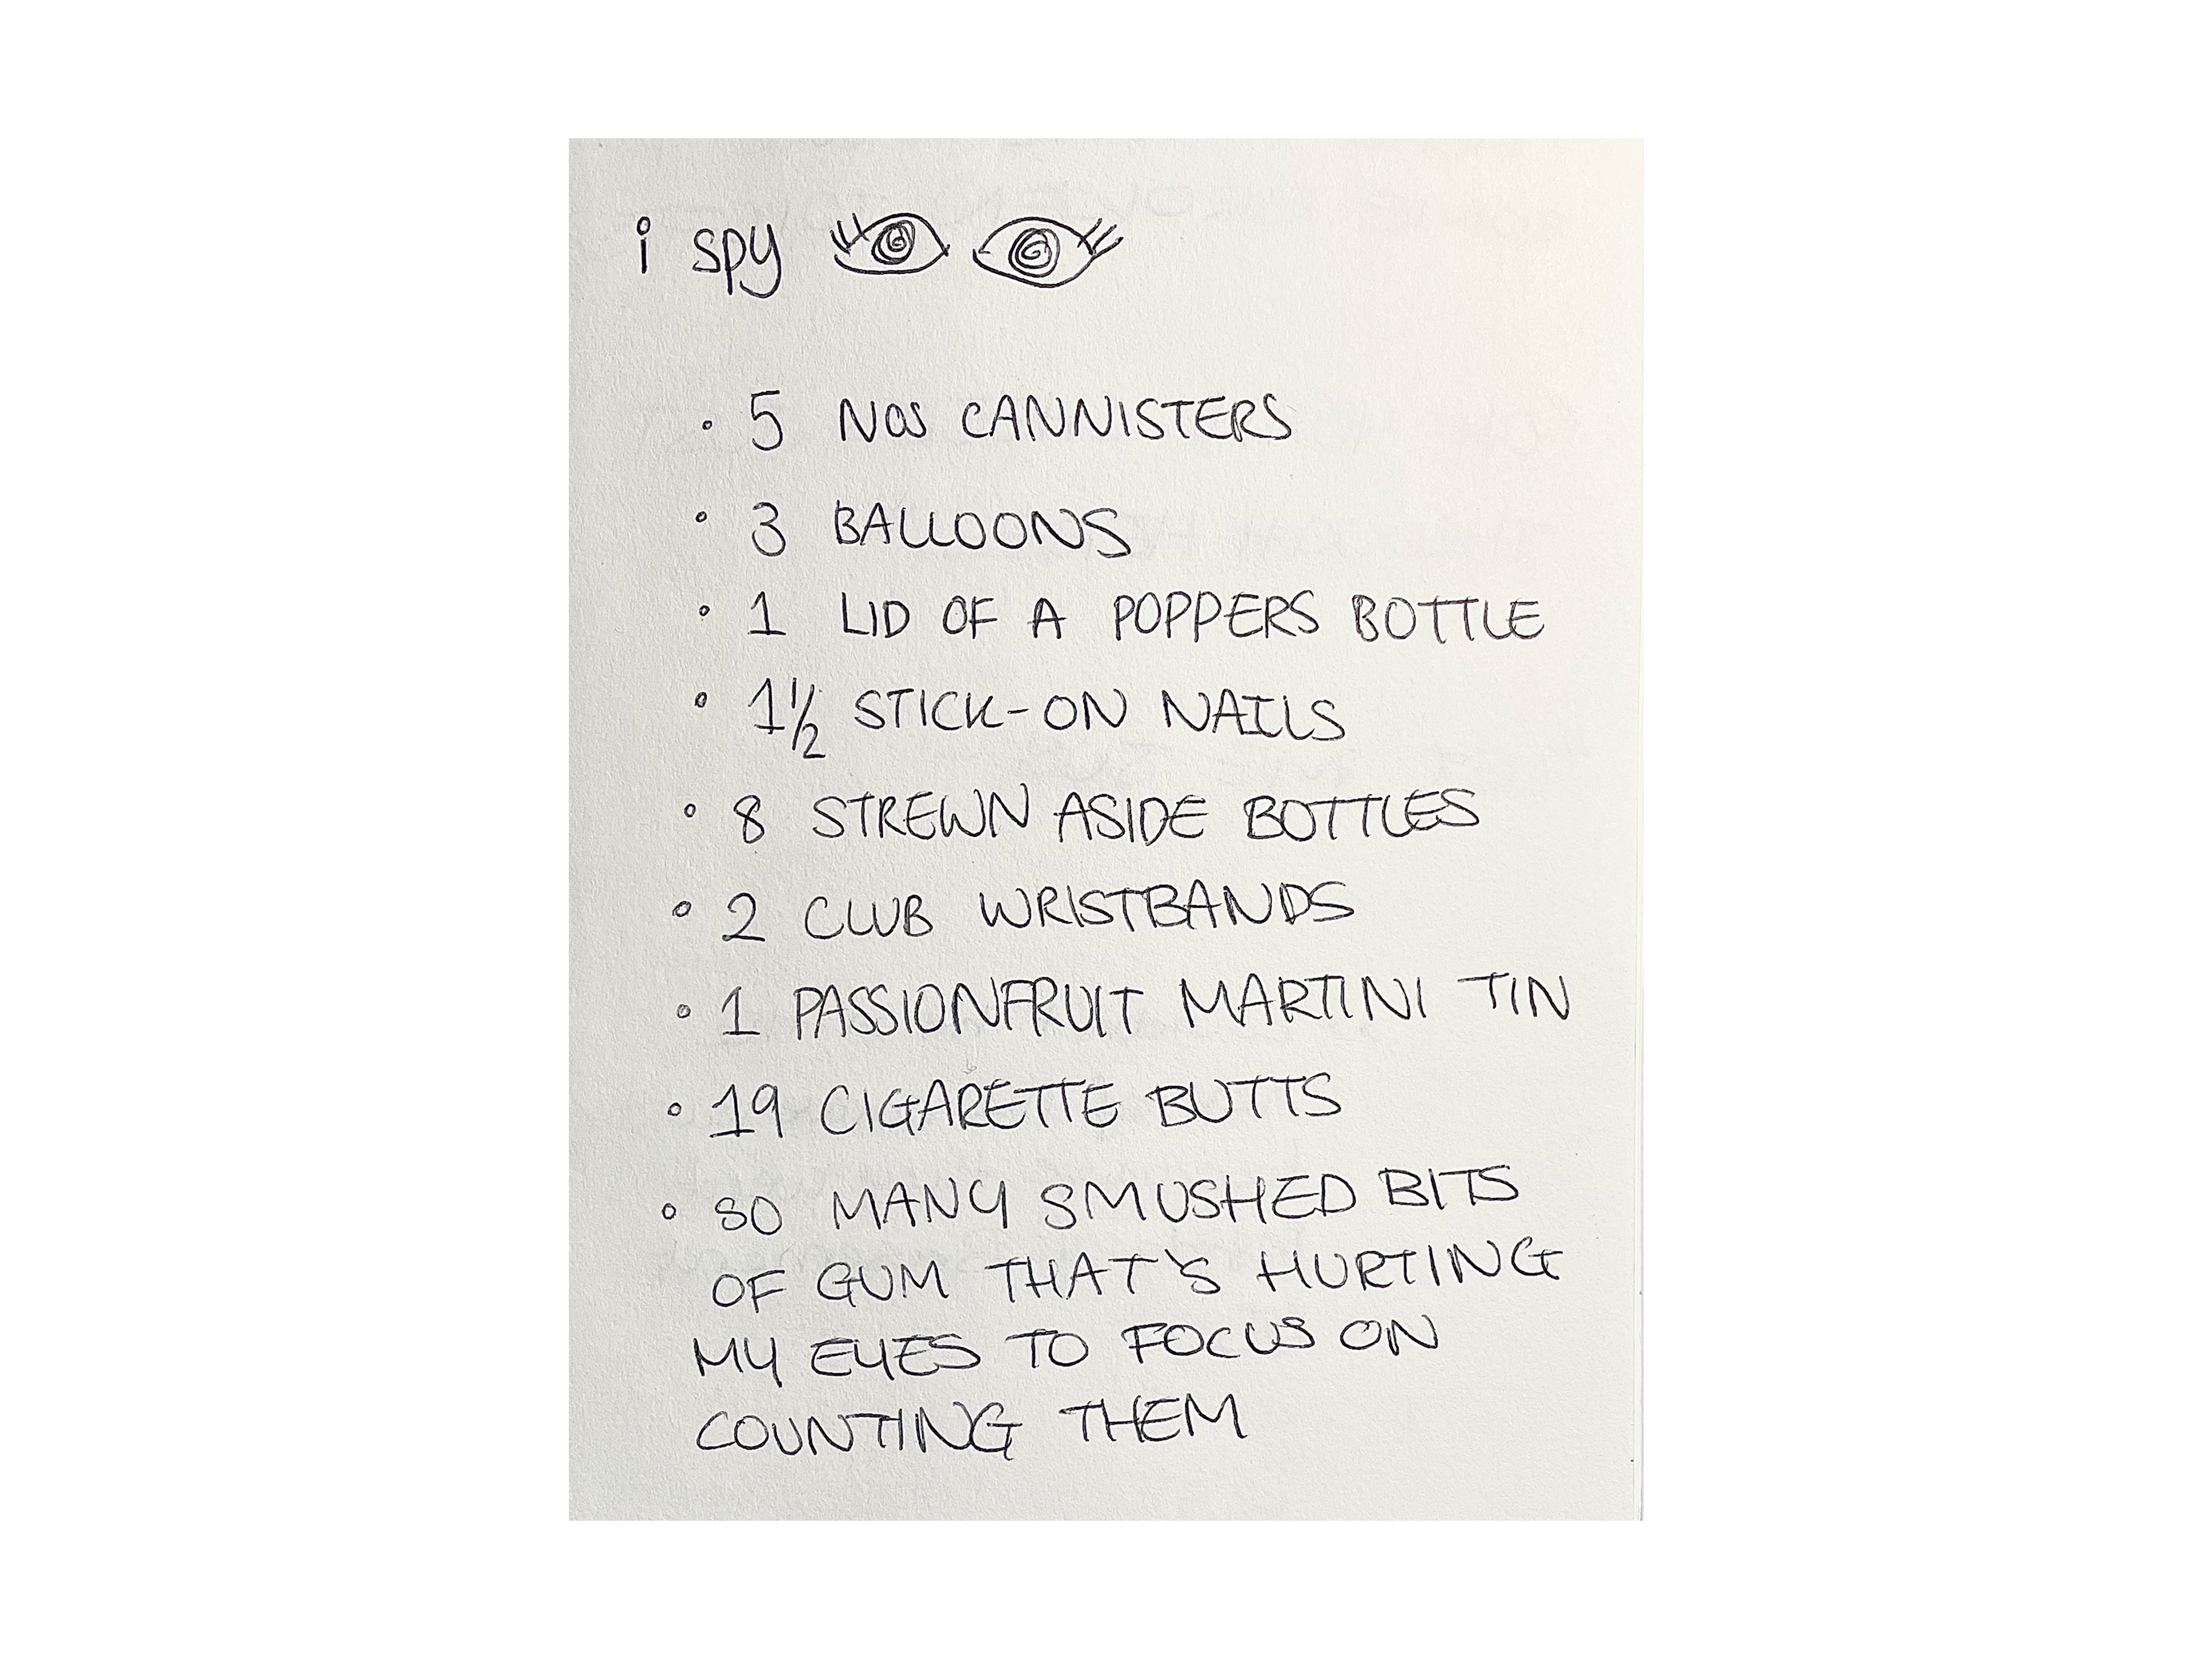 i spy
• 5 NOS CANNISTERS
• 3 BALLOONS
• 1 LID OF A POPPERS BOTTLE
• 1½ STICK-ON NAILS
• 8 STREWN ASIDE BOTTLES
• 2 CLUB WRISTBANDS
• 1 PASSIONFRUIT MARTINI TIN
• 19 CIGARETTE BUTTS
• SO MANY SMUSHED BITS
OF GUM THAT'S HURTING
MY EYES TO FOCUS ON
COUNTING THEM